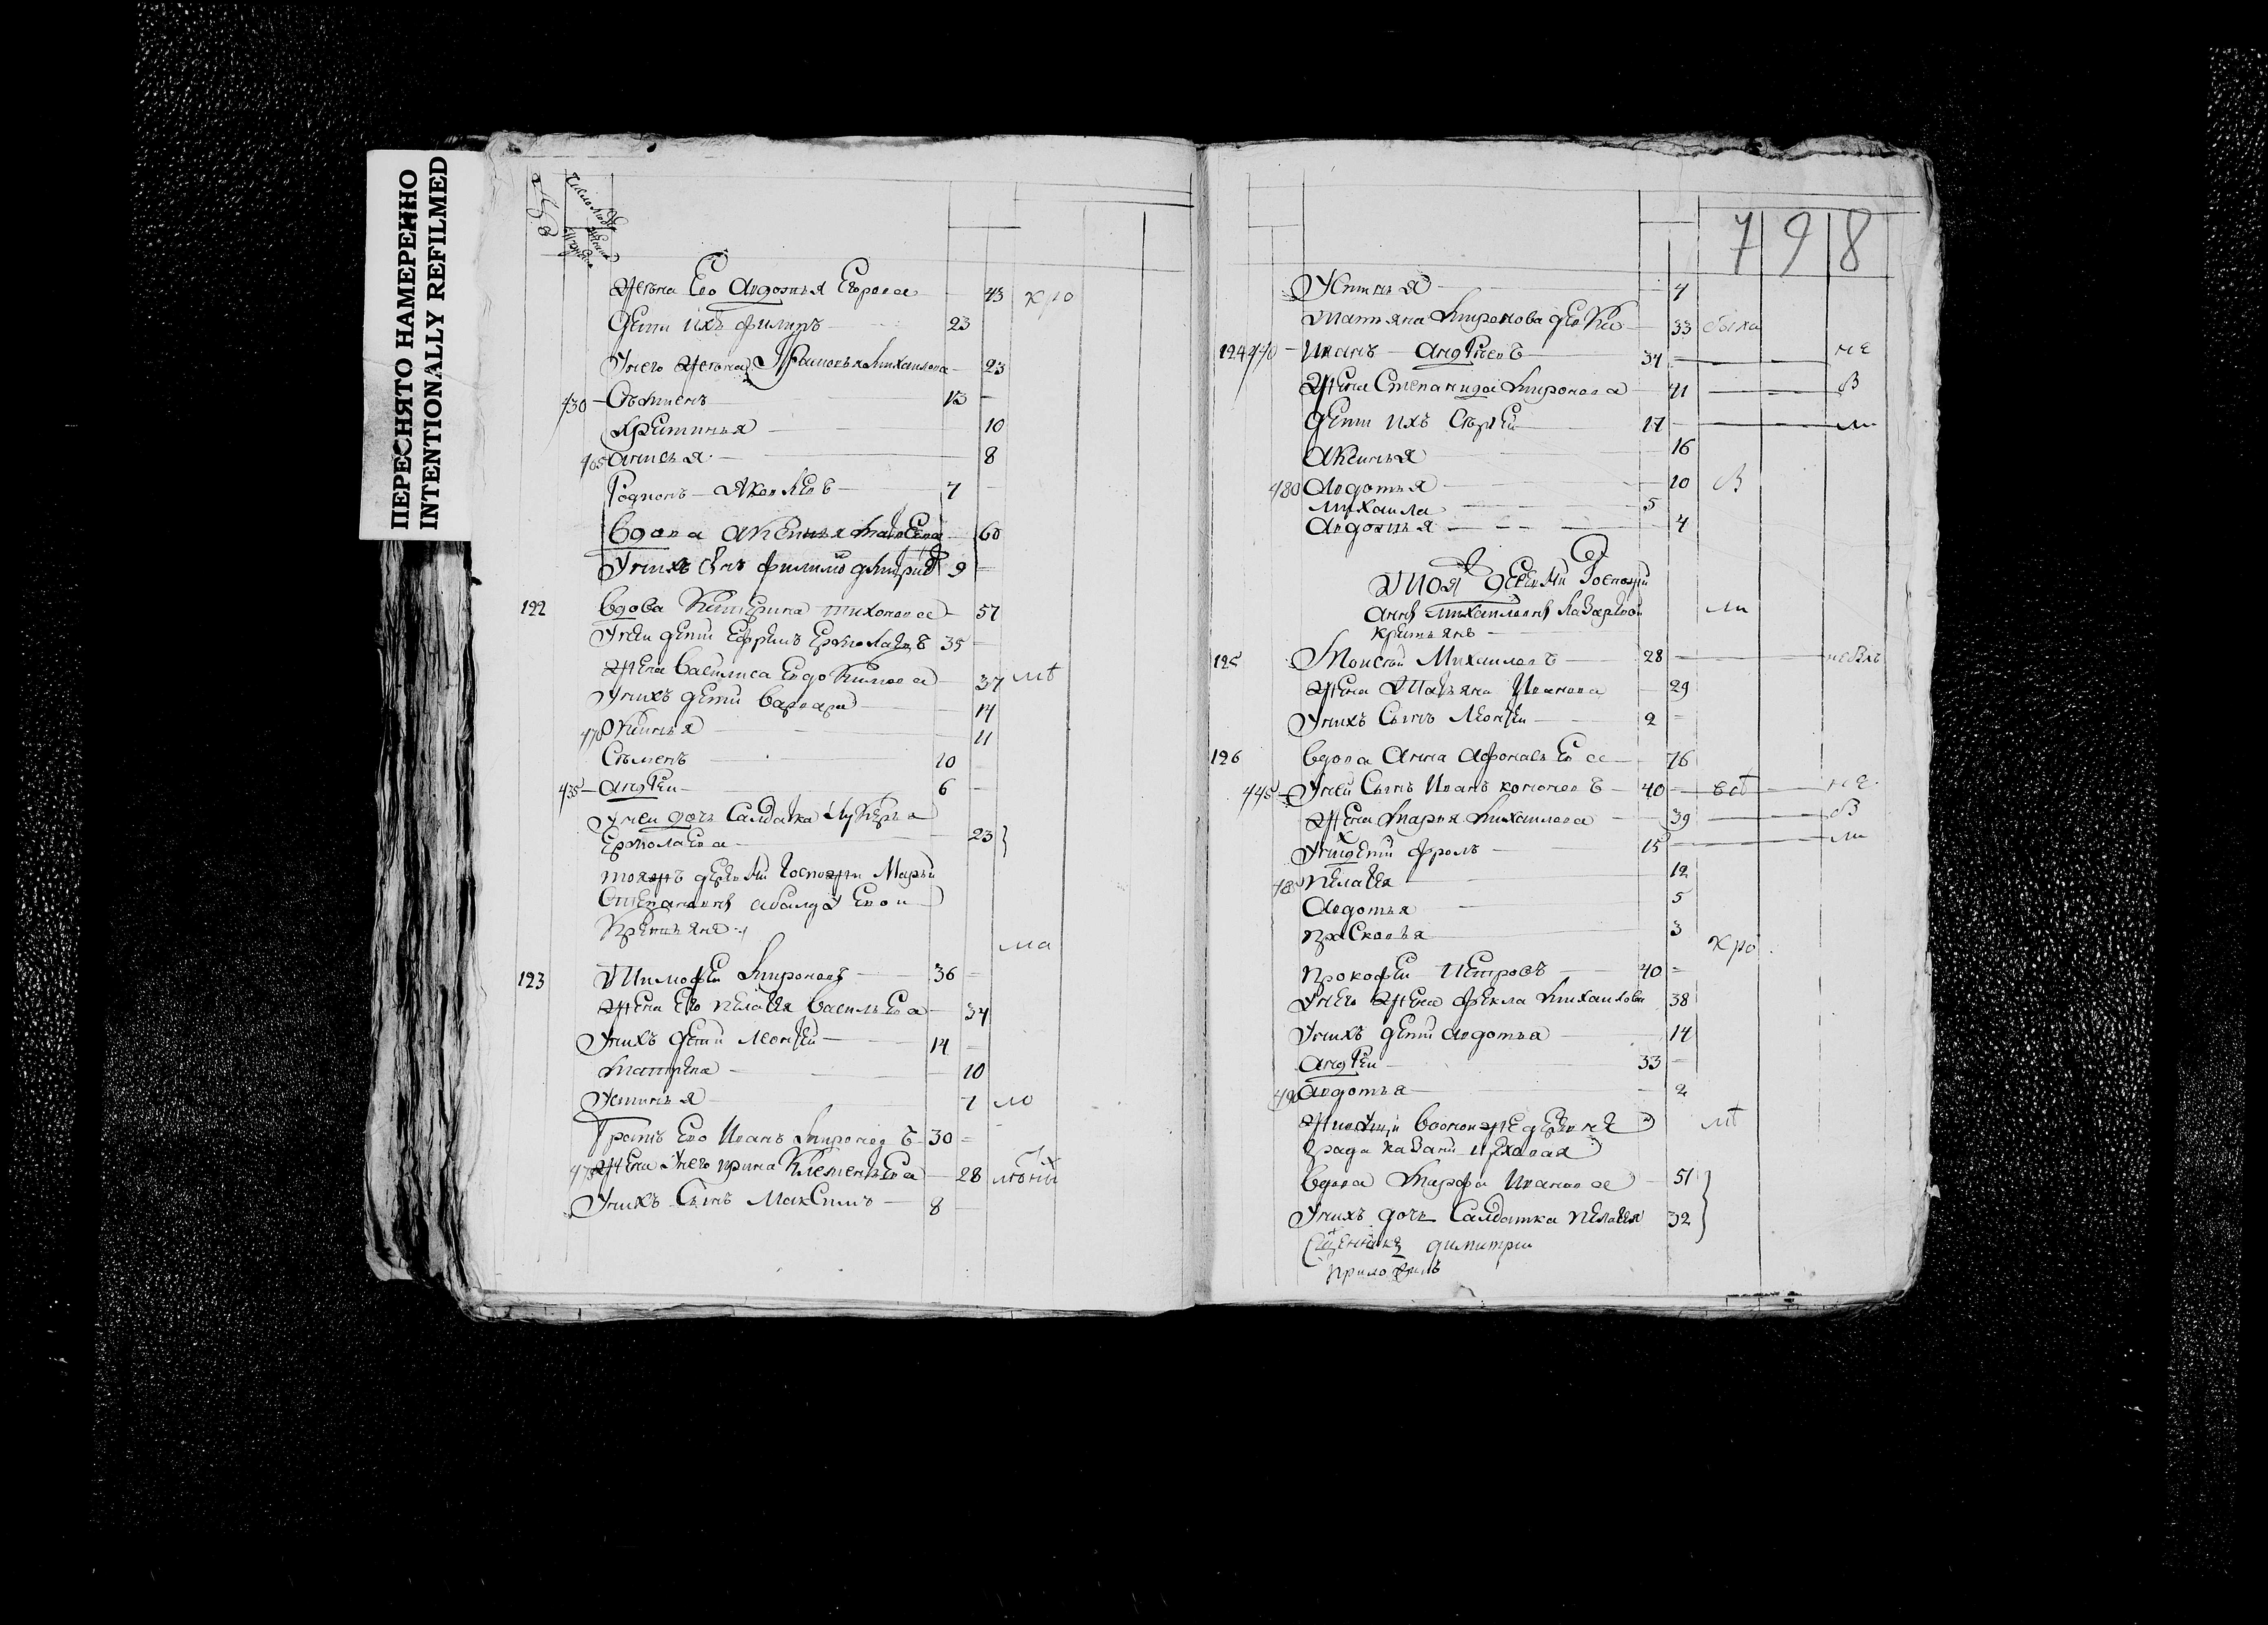 ПЕРЕСНЯТО НАМЕРЕННО
INTENTIONALLY REFILMED
число людей
жена Его Авдотья Егорова 43 хро
Дети ихъ филипъ 23
Унего жена Михаилова 23
430 Съмѣнъ 13
Христинья 10
465 анисья 8
Родионъ Яковлевъ 7
Вдова аксинья 60
9
122 вдова Катерина тихонова 57
Унеи дети Ефремъ Ермолаевъ 35
жена василиса Евдокимова 37 мѣ
Унихъ дети варвара 14
470 11
Съменъ 10
435 андреи 6
Унеи дочь салдатка Лукерья
Ермолаева 23
тояжъ деревни госпожи Марьи
Степановны
Крестьяне
ма
123 Тимофеи Миронавъ 36
жена Его пелагея васильева 34
Унихъ дети леонтеи 14
Матрена 10
Устинья 7 мо
братъ Ево Иванъ Миронов ъ 30
475 жена Унего ирина Клементьева 28
Унихъ Сынъ Максимъ 8
798
Устинья 4
татьяна Миронова 33 была
124 440 Иванъ андреевъ 34 не
жена Степанида Миронова 41 в
Дети ихъ Сергеи 17 ли
Аксинья 16
480 Авдотья 10 в
михаила 5
Авдотья 4
Тоя деревни госпожи
анны михаиловны лазаревои ли
крестьянъ
125 Моисеи Михаиловъ 28 небылъ
жена Татьяна Иванова 29
Унихъ Сынъ Леонтеи 2
126 вдова Анна афонасьева 76
445 Унеи Сынъ Иванъ кононовъ 40 вѣ не
жена Марья Михаилова 39 в
Унихъ дети фролъ 15 ли
пелагея 12
Авдотья 5
прасковья 3
хро
прокофеи петровъ 40
Унего жена фекла Михаилова 38
Унихъ дети авдотья 14
андреи 33
490 авдотья 2
воонои же деревне мѣ
града казани
вдова Марфа Иванова 51
Унихъ дочь салдатка пелагея 32
димитрии
приложилъ